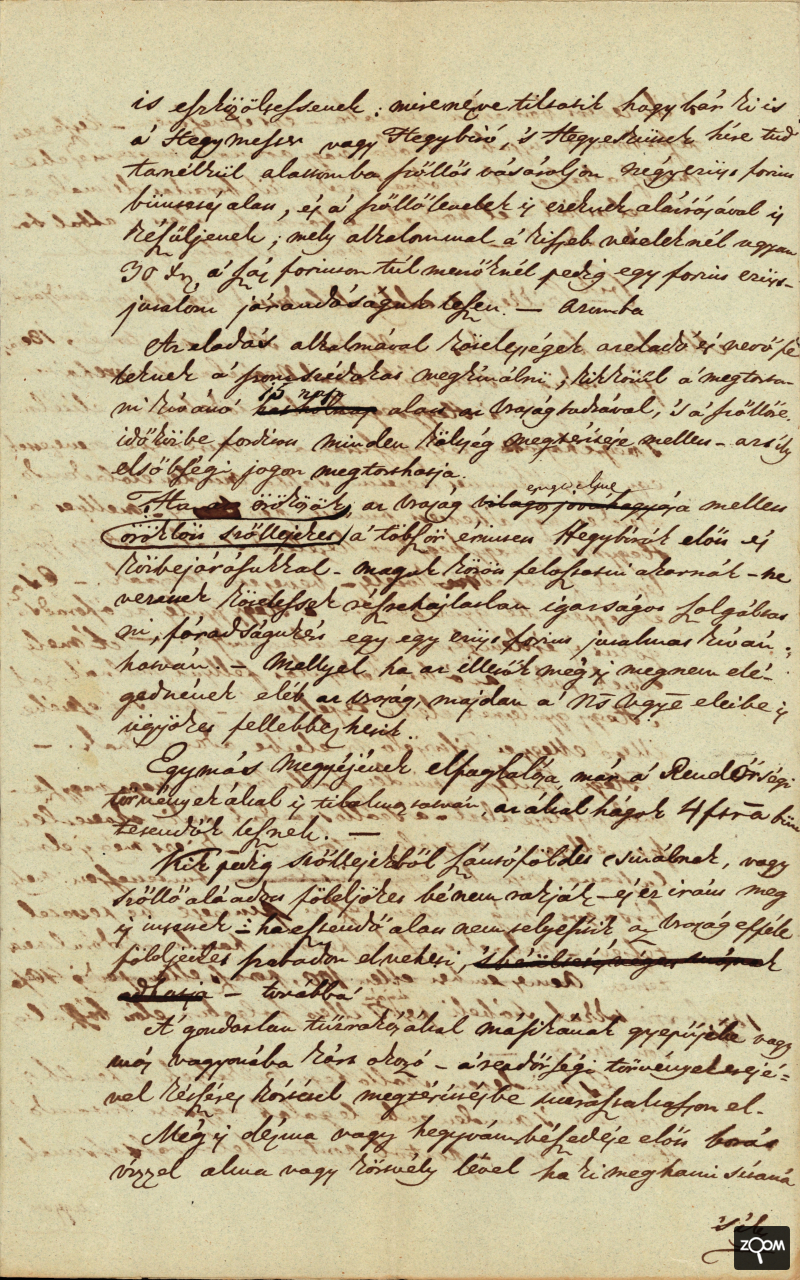 is eszközöltessenek; mire nézve tiltatik hogy bár ki is
a' Hegymester vagy Hegybiró, 's Hegyesküttek hire tud
ta nélkül alattomba szőllőt vásároljon négy ezüst forint
büntetés alatt, és a' szőllőlevelek is ezeknek aláirásával is
készüljenek; mely alkalommal a' kissebb vételeknél ugyan
30 xr a' száz forinton túl menőknél pedig egy forint ezüst-
jutalom járandóságuk leszen. — azomba
Az eladás alkalmával köteleztetnek az eladó és vevő fe
leknek a' szomszédokat megkinálni, kik közül a' megtarta-
ni kivánó 15 nap alatt az Uraság tudtával, 's a' szőllőre
időközbe fordított minden költség megtéritése mellett – azt ily
elsőbségi jogon megtarthatja.
Ha az örökösök, az Uraság engedelme mellett
öröklött szőllejeket a' többször érintett Hegybirák előtt és
közbejárásukkal – maguk között felosztatni akarnák – ne
vezettek kötelesek részrehajlatlan igazságos szolgáltat
ni, fáradságukért egy egy ezüst forint jutalmat kiván-
hatván – Mellyel ha az illetők még is meg nem elé-
gednének elébb az uraság, majdan a' Ns Vgye eleibe is
ügyöket fellebbezhetik.
Egymás Megyéjének elfoglalója, már a' Rendőrségi
törvények által is tilalmaztatván, az által hágók 4 ftra bün
tetendők lesznek. —
Kik pedig szőllejekből szántóföldet csinálnak, vagy
szőllő alá adott földjöket bé nem rakják – és ez iránt meg
is intetnek – ha esztendő alatt nem telyesitik az Uraság efféle
földjeiket szabadon elveheti,
– továbbá
A' gondatlan tűzrakás által másikának gyepűjébe vagy
más vagyonába kárt okozó – a' rendőrségi törvények erejé-
vel készség kárának megtéritésébe marasztaltasson el.
Még is dézma vagy hegyvám bészedéje előtt borát
vízzel alma vagy körtvély lével ha ki meghamisitaná